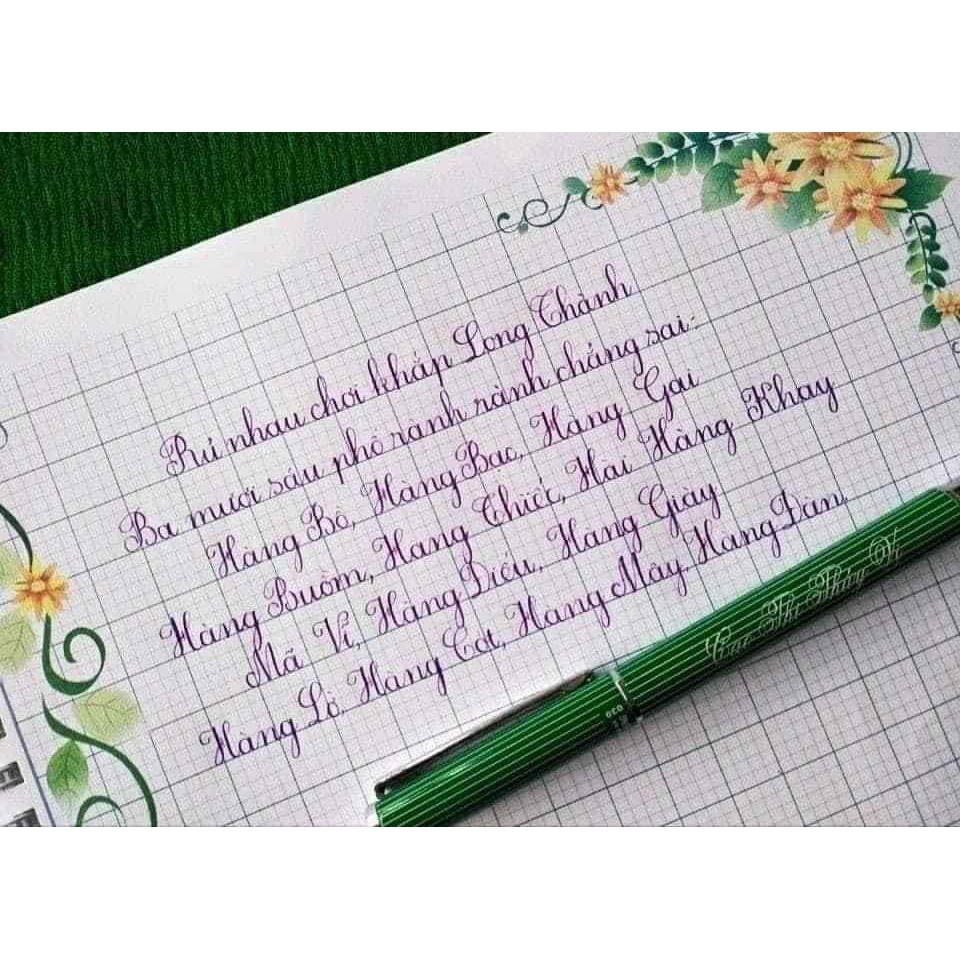 Rủ nhau chơi khắp Long Thành
Ba mươi sáu phố rành rành chẳng sai:
Hàng Bồ, Hàng Bạc, Hàng Gai
Hàng Buồm, Hàng Thiếc, Hài Hàng Khay
Mã Vĩ, Hàng Điếu, Hàng Giày
Hàng Lờ, Hàng Cót, Hàng Mây, Hàng Đàn,
Cao Thị Thúy Vi